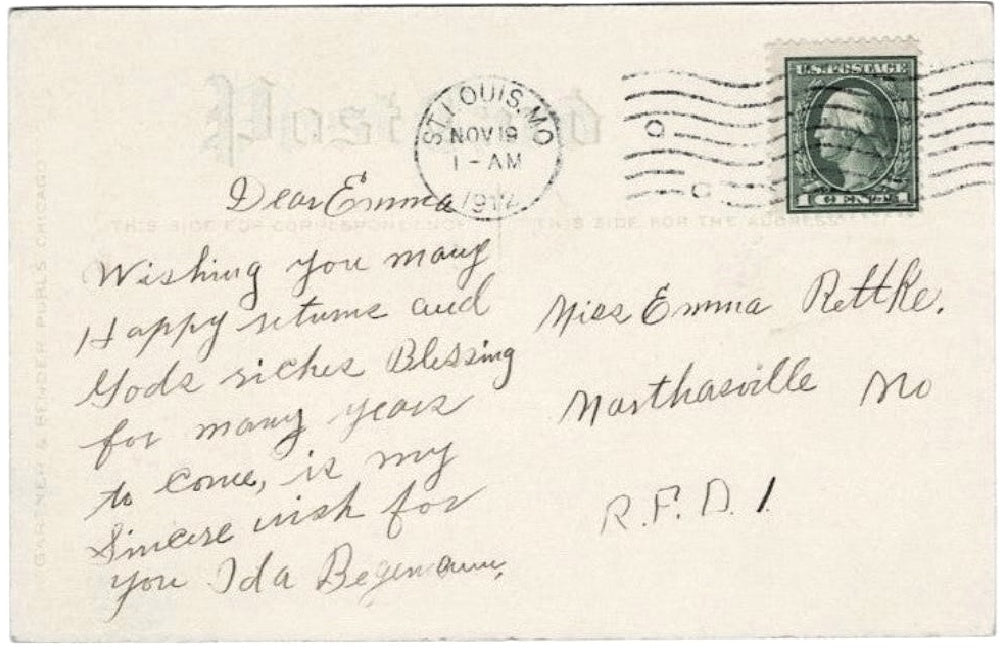 Post Card
ST. LOUIS, MO
NOV 19
1 - AM
U.S. POSTAGE
1 CENT 1
THIS SIDE FOR CORRESPONDENCE
THIS SIDE FOR THE ADDRESS
GARTNER & BENDER PUBL'S CHICAGO
Dear Emma
Wishing you many
Happy returns and
Gods riches Blessing
for many years
to come, is my
Sincere wish for
you Ida Begemann.
Miss Emma Rettke.
Marthasville Mo
R.F.D. 1